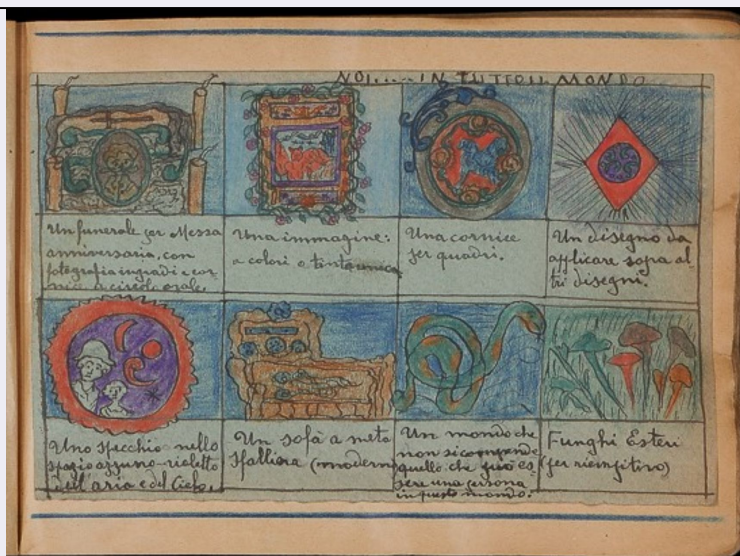 NOI.....IN TUTTO IL MONDO
Un funerale per Messa
anniversaria, con
fotografia in
a circolo ovale.
Una immagine:
a colori o tinta unica
Una cornice
per quadri.
Un disegno da
applicare sopra al=
tri disegni.
Uno specchio nello
spazio azzurro-violetto
dell'aria e del Cielo.
Un sofà a metà
spalliera (moderno)
Un mondo che
non si comprende
quello che può es=
sere una persona
in questo mondo.
Funghi Esteri
(per riempitivo)